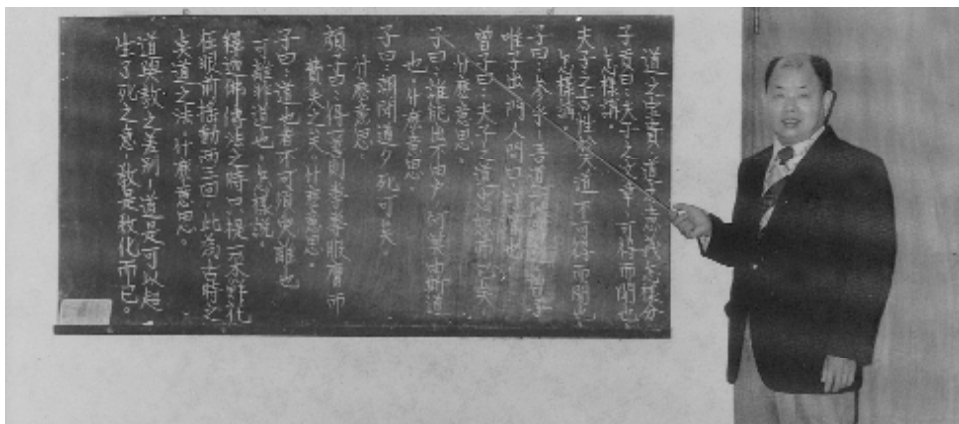 道之宝貴、道子怎樣分
子貢曰:夫子之文章、可得而聞也、
怎樣講。
夫子之言性與天道、不可得而聞也、
怎樣講
子曰:參乎!吾道 曾子
唯子出、門人問曰:何謂也
曾子曰:夫子之道忠恕而已矣
什麼意思。
子曰:誰能出不由户、何莫由斯道
也、什麼意思.
子曰:朝聞道夕死可矣。
什麼意思.
顏子曰、得一善則拳拳服膺而
失之矣、什麼意思。
子曰:道也者不可須臾離也
可離非道也。怎樣說。
釋迦佛傳法之時口提一朵鮮花
在眼前搖動兩三回、此為古時之
點道之法、什麼意思。
道與教之差別!道是可以超
生了死之意、教是教化而已。